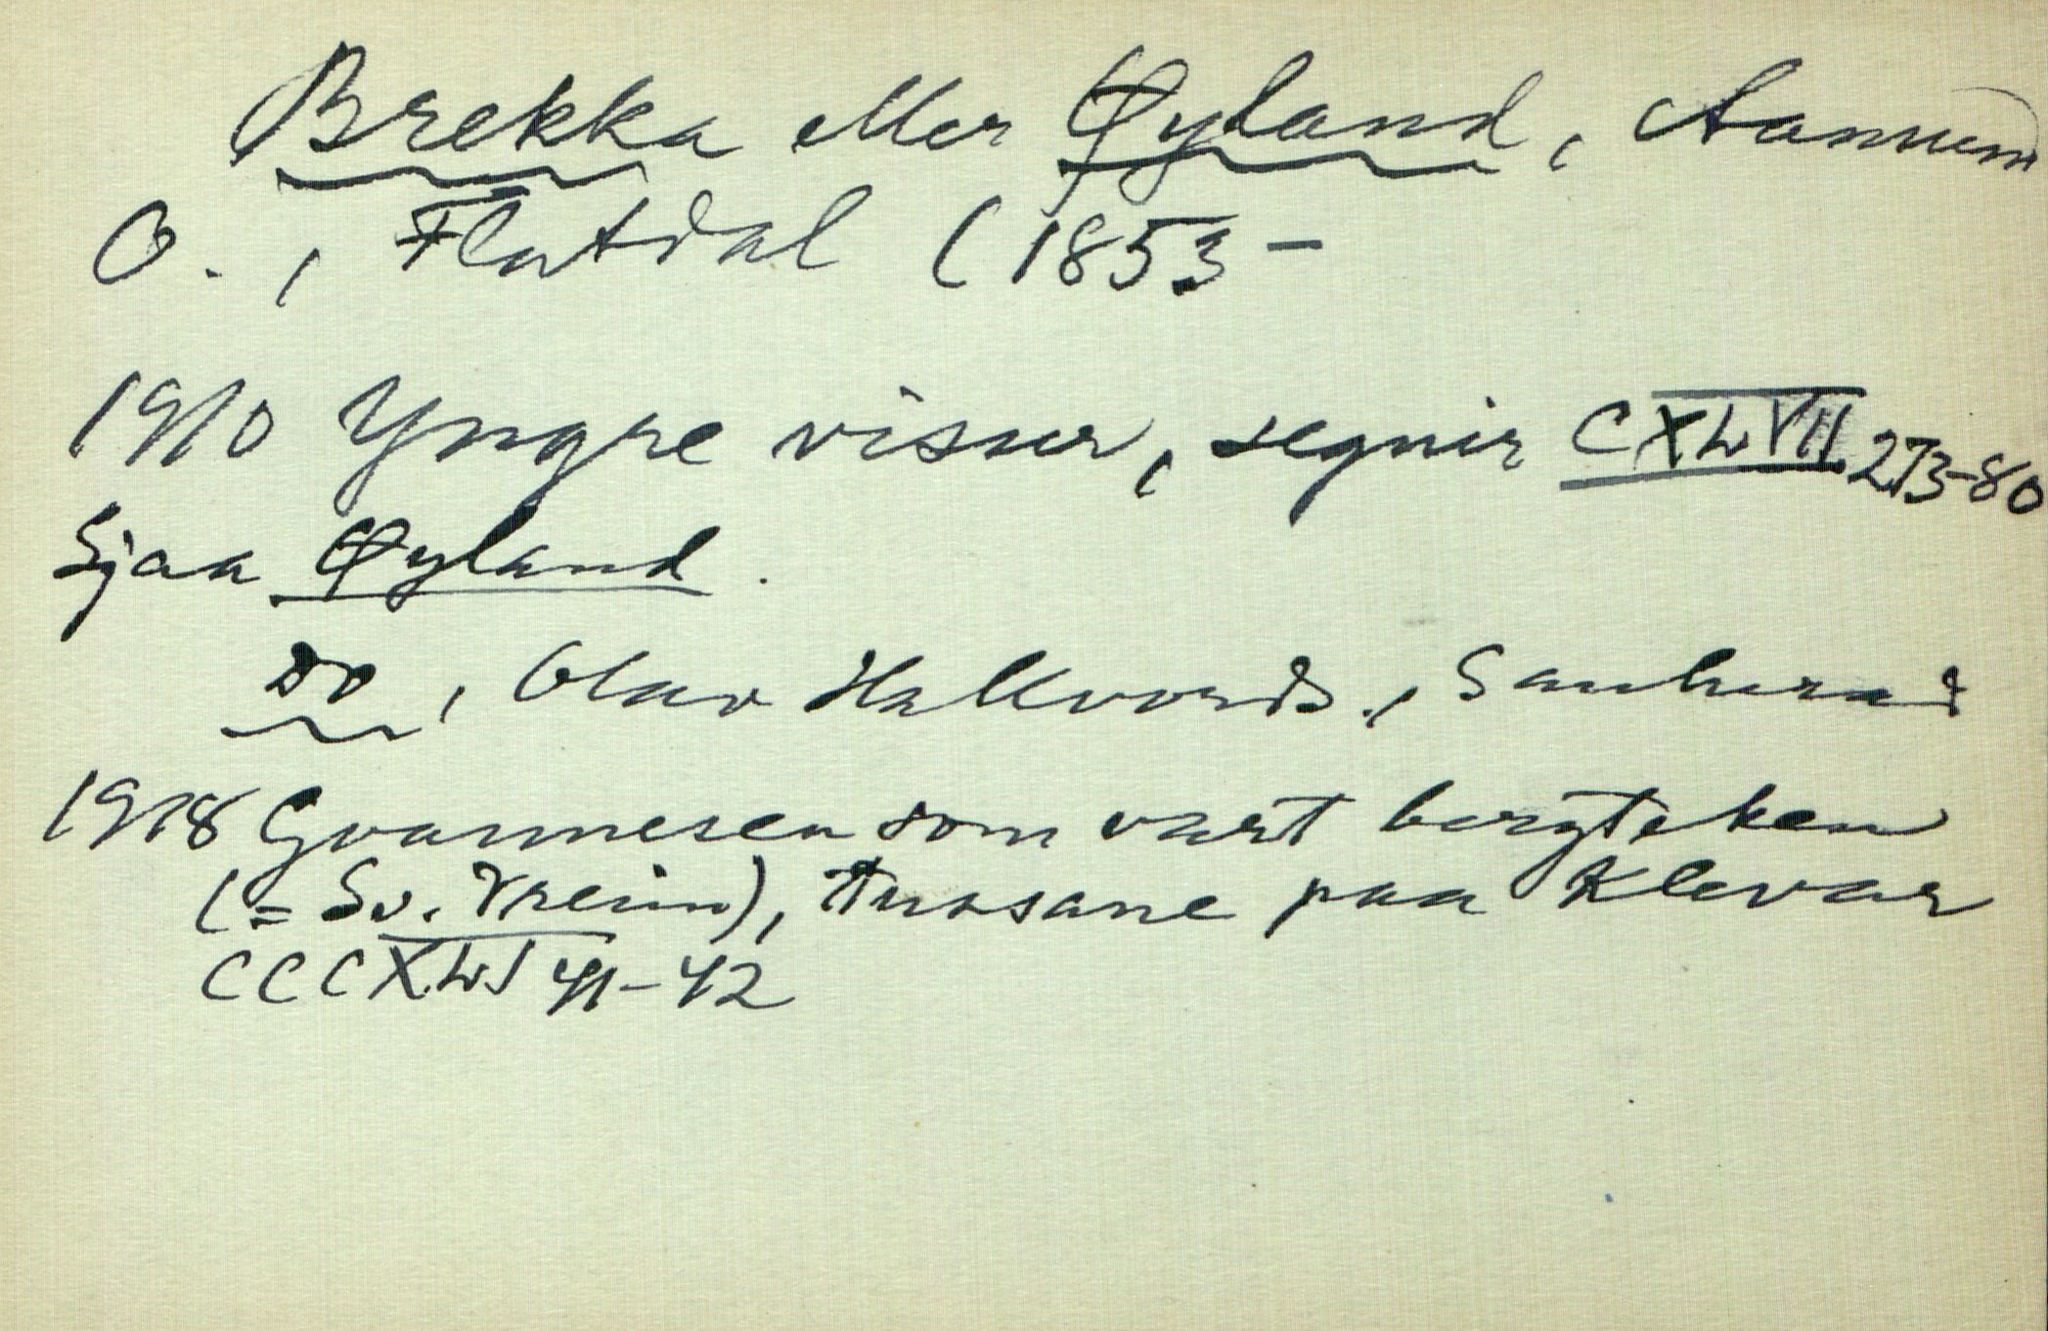 Brekka eller Øyland, Aamun
O., Flatdal (1853–
1910 Yngre visur, segnir CXLVII. 273–80
Sjaa Øyland.
Do, Olav Hallvords., Sauherad
1918 Gvannesen som vart bergteken
(= Sv. Vreim), tussane paa Klevar
CCCXLI 41–42